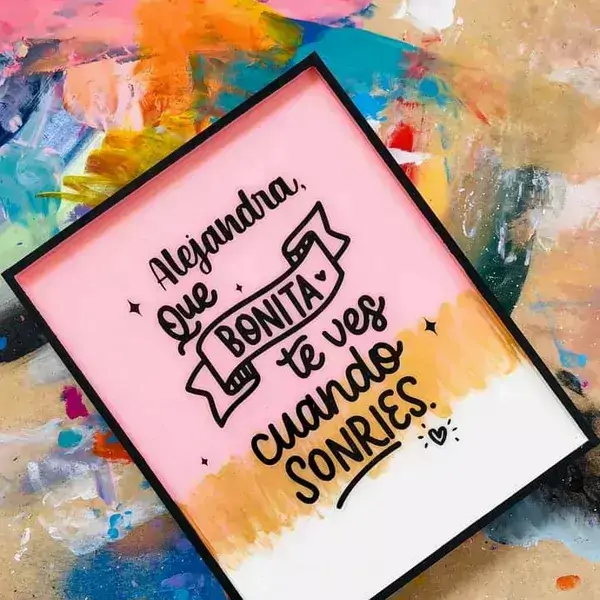 Alejandra,
Que
BONITA
te ves
cuando
SONRIES.